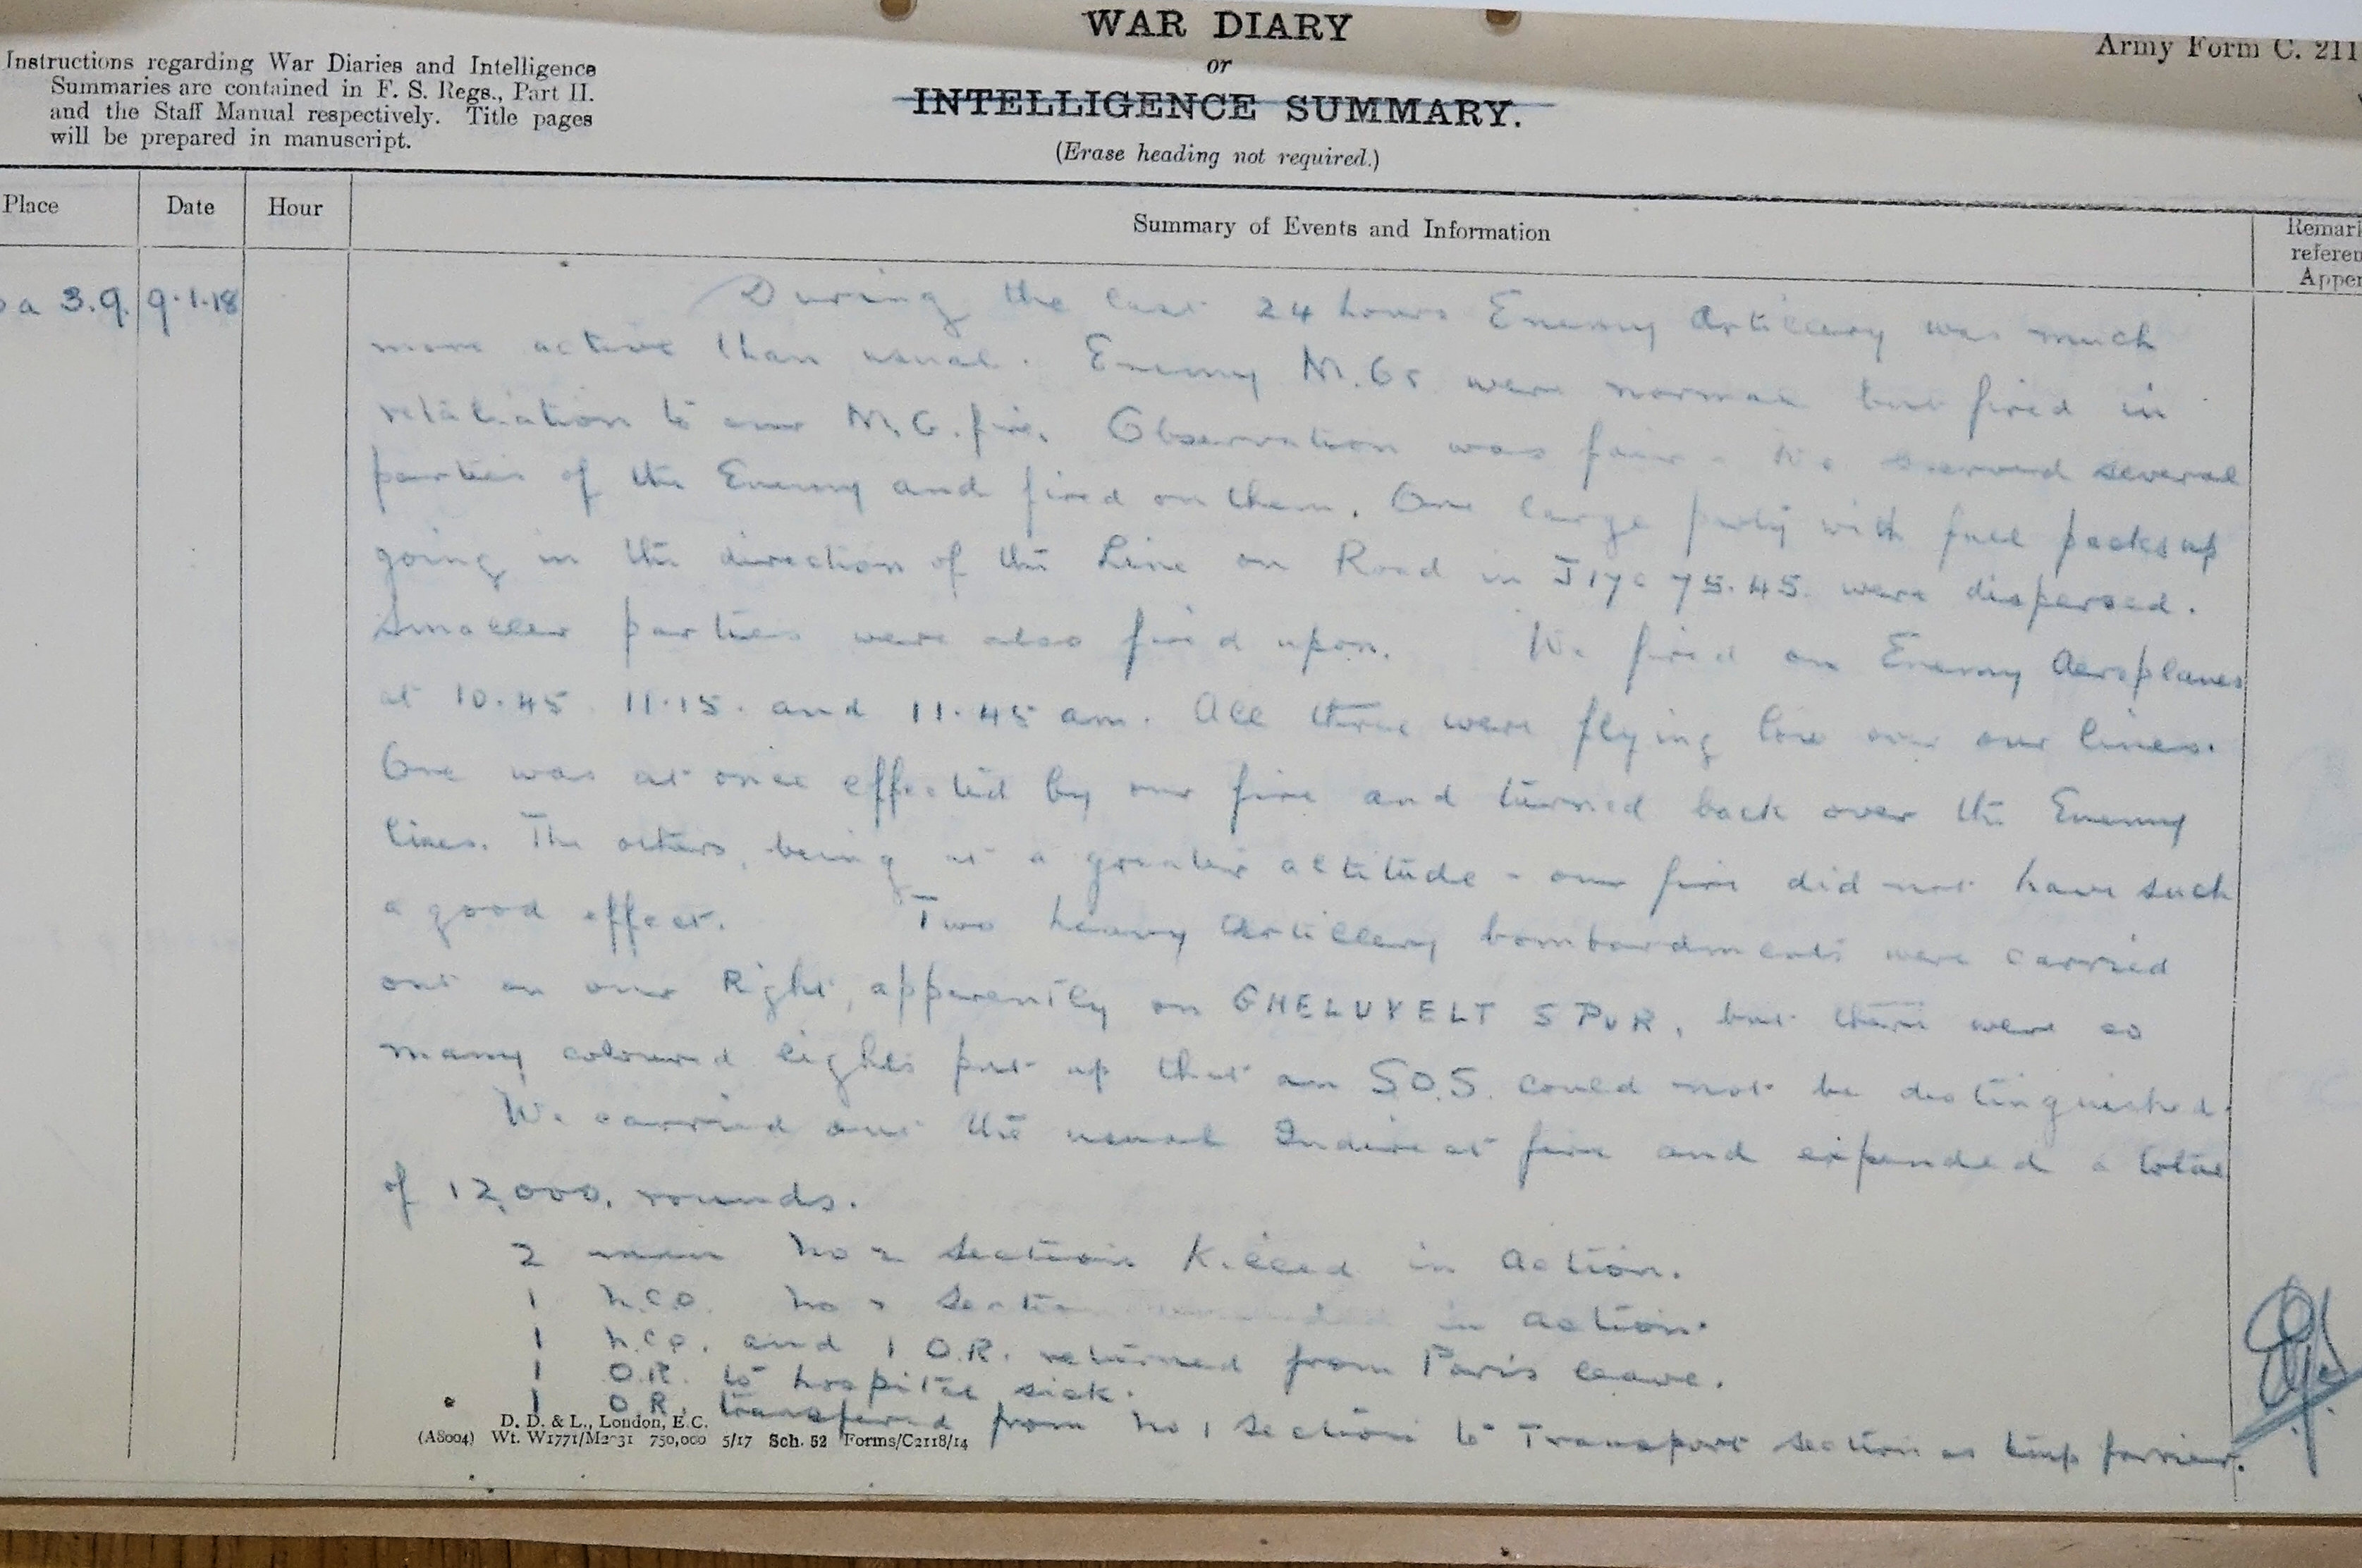 WAR DIARY
or
INTELLIGENCE SUMMARY.
(Erase heading not required.)
Army Form C. 211
Instructions regarding War Diaries and Intelligence
Summaries are contained in F. S. Regs., Part II.
and the Staff Manual respectively. Title pages
will be prepared in manuscript.
Place Date Hour Summary of Events and Information
Remark
referen
Appen
a 3.9. 9.1.18
During the last 24 hours Enemy Artillery was much
more active than usual. Enemy M.Gs were normal but fired in
retaliation to our M.G. fire. Observation was fair - We observed several
parties of the Enemy and fired on them. One large party with full packs up
going in the direction of the Line on Road in J17c 75.45. were dispersed.
Smaller parties were also fired upon. We fired on Enemy Aeroplanes
at 10.45. 11.15. and 11.45 am. All three were flying low over our lines.
One was at once effected by our fire and turned back over the Enemy
lines. The others, being at a greater altitude - our fire did not have such
a good effect. Two heavy Artillery bombardments were carried
out on our Right, apparently on GHELUVELT SPUR, but there were so
many coloured lights put up that an S.O.S. could not be distinguished.
We carried out the usual Indirect fire and expended a total
of 12,000. rounds.
2 men No 2 Section Killed in Action.
1 N.C.O. No Section wounded in action.
1 N.C.O. and 1 O.R. returned from Paris leave.
1 O.R. to hospital sick.
1 O.R. transfered from No 1 Section to Transport Section as temp farrier.
D. D. & L., London, E.C.
(A8004) Wt. W1771/M2031 750,000 5/17 Sch. 52 Forms/C2118/14